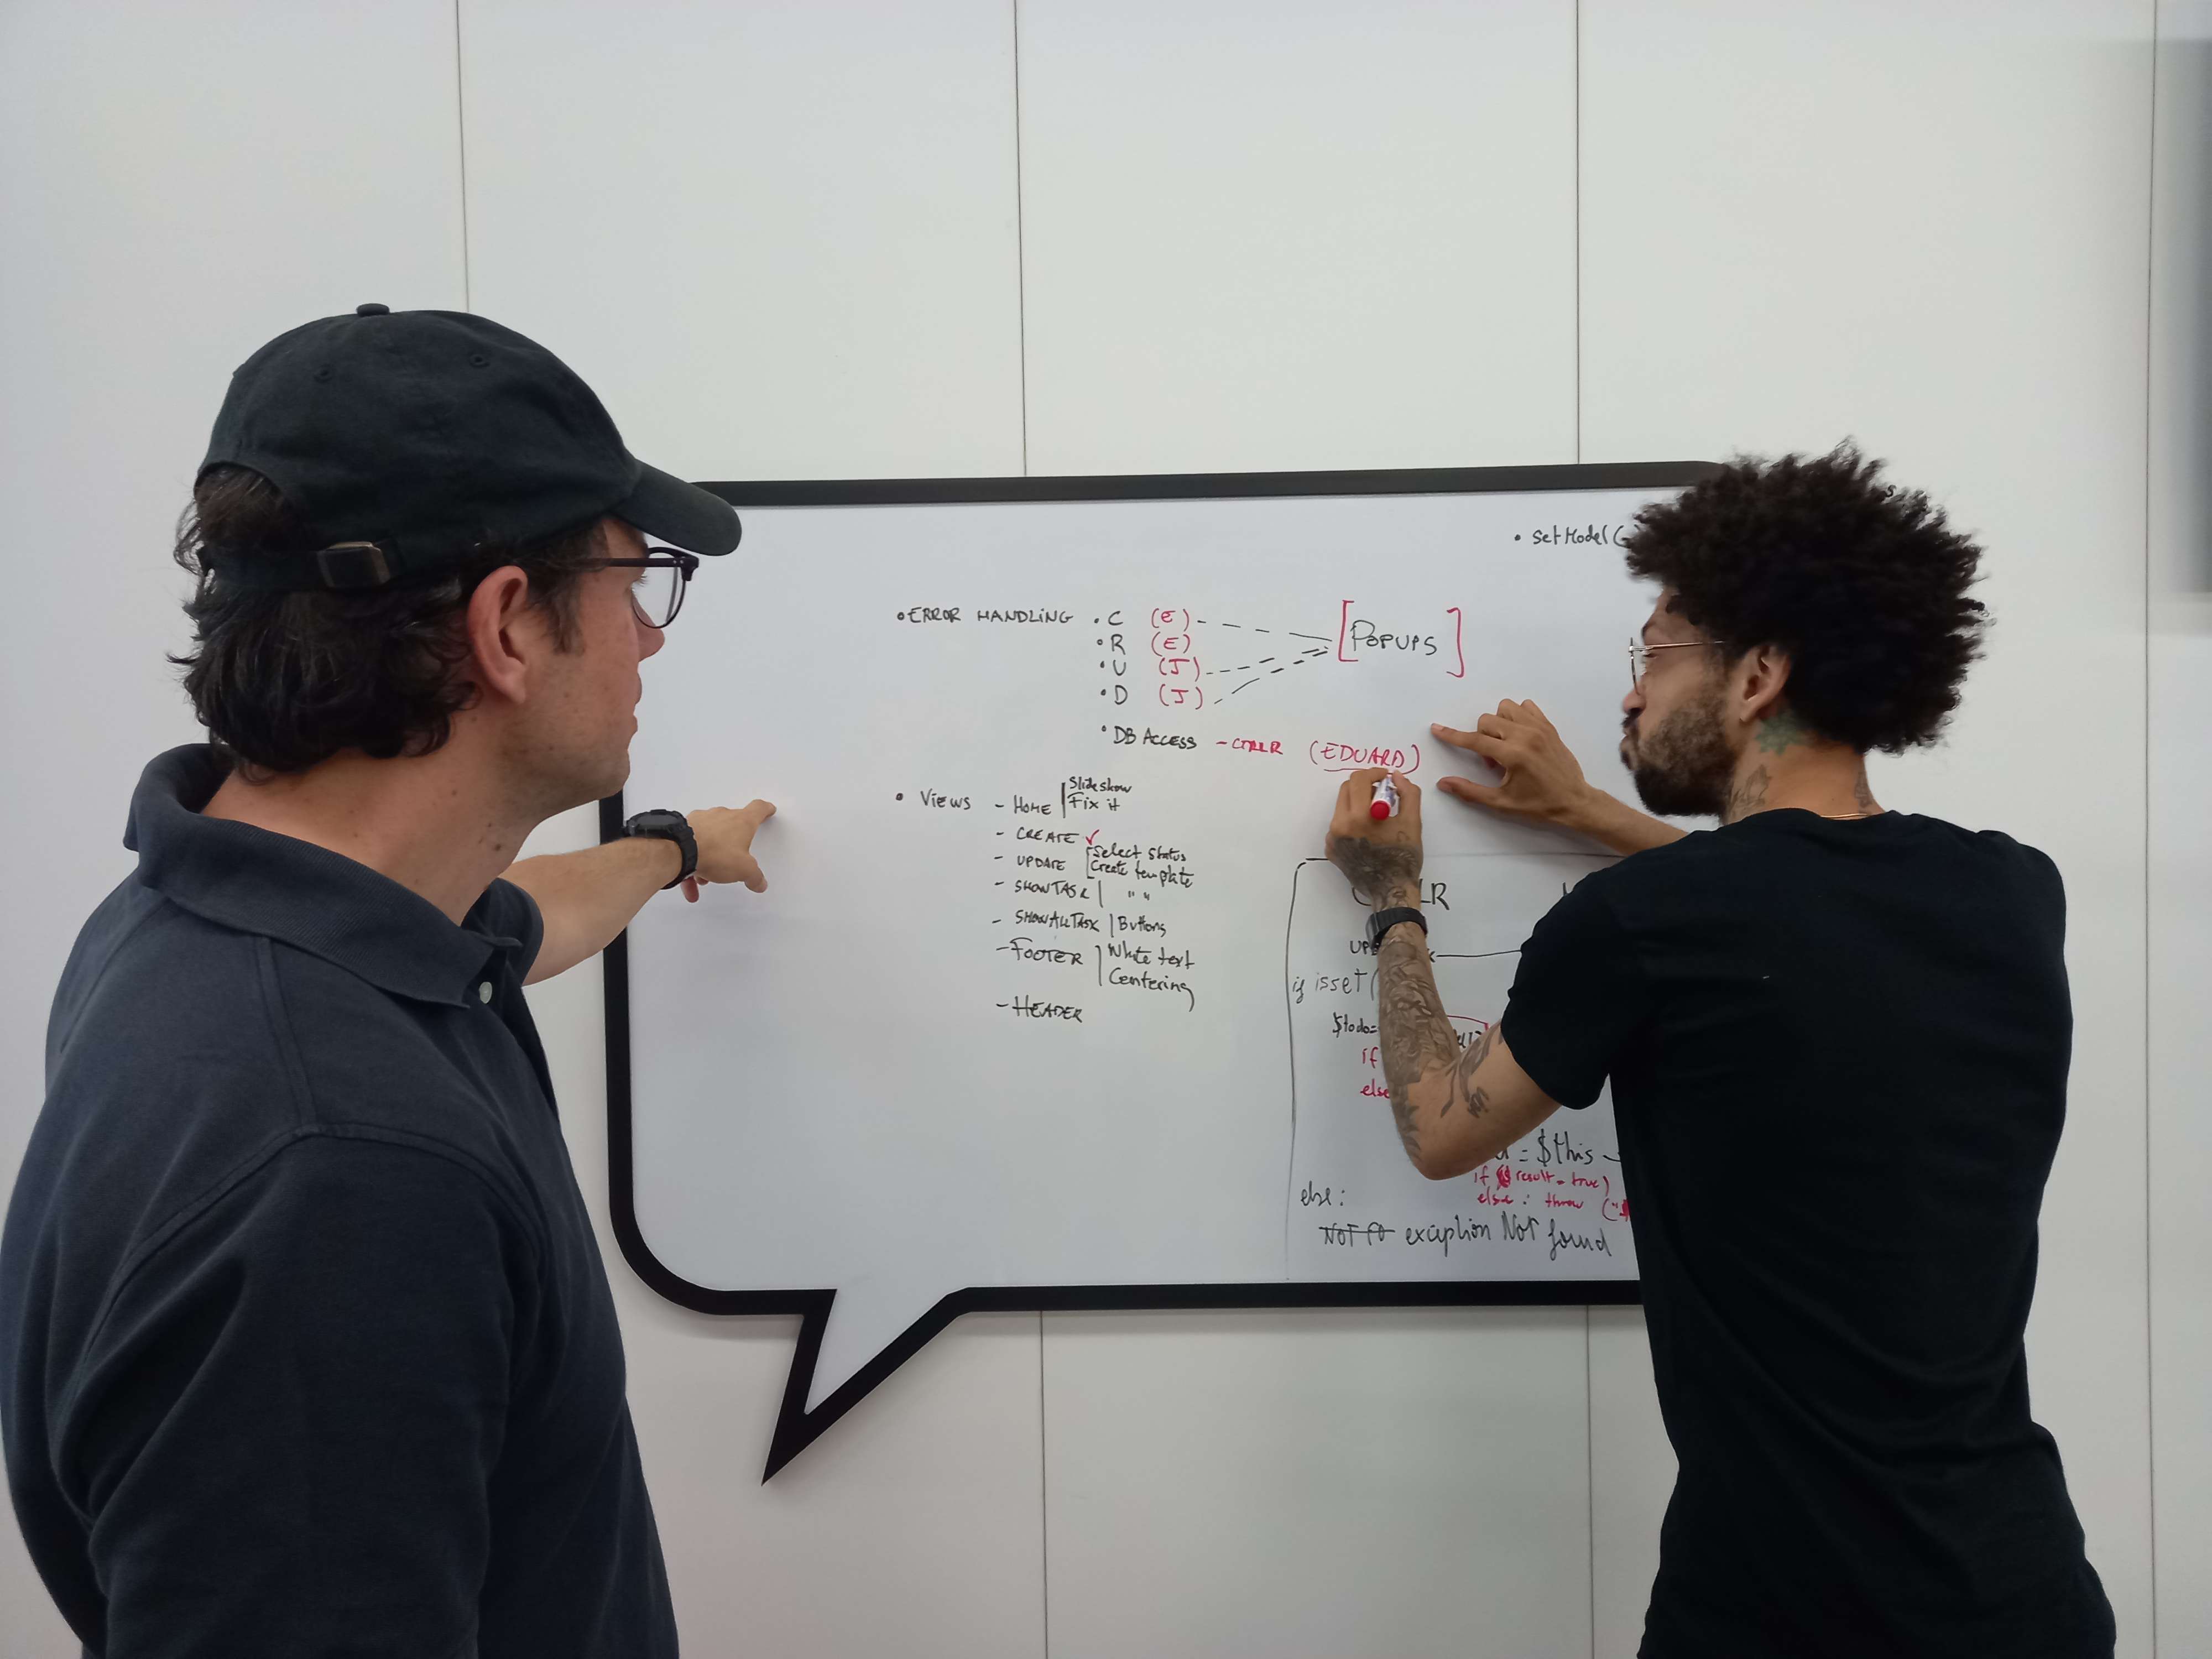 • setModel(
• ERROR HANDLING • C (E) [POPUPS]
• R (E)
• U (J)
• D (J)
• DB ACCESS - CTRLR (EDUARD)
• VIEWS - HOME | Slideshow
Fix it
- CREATE ✓
- UPDATE [ Select status
Create template
- SHOWTASK | " "
- SHOWALLTASK | Buttons
- FOOTER | White text
Centering
- HEADER
LR
UP
if isset (
$todo=
if
else
= $this
if result = true)
else : throw ("
else:
NOT FO exception Not found